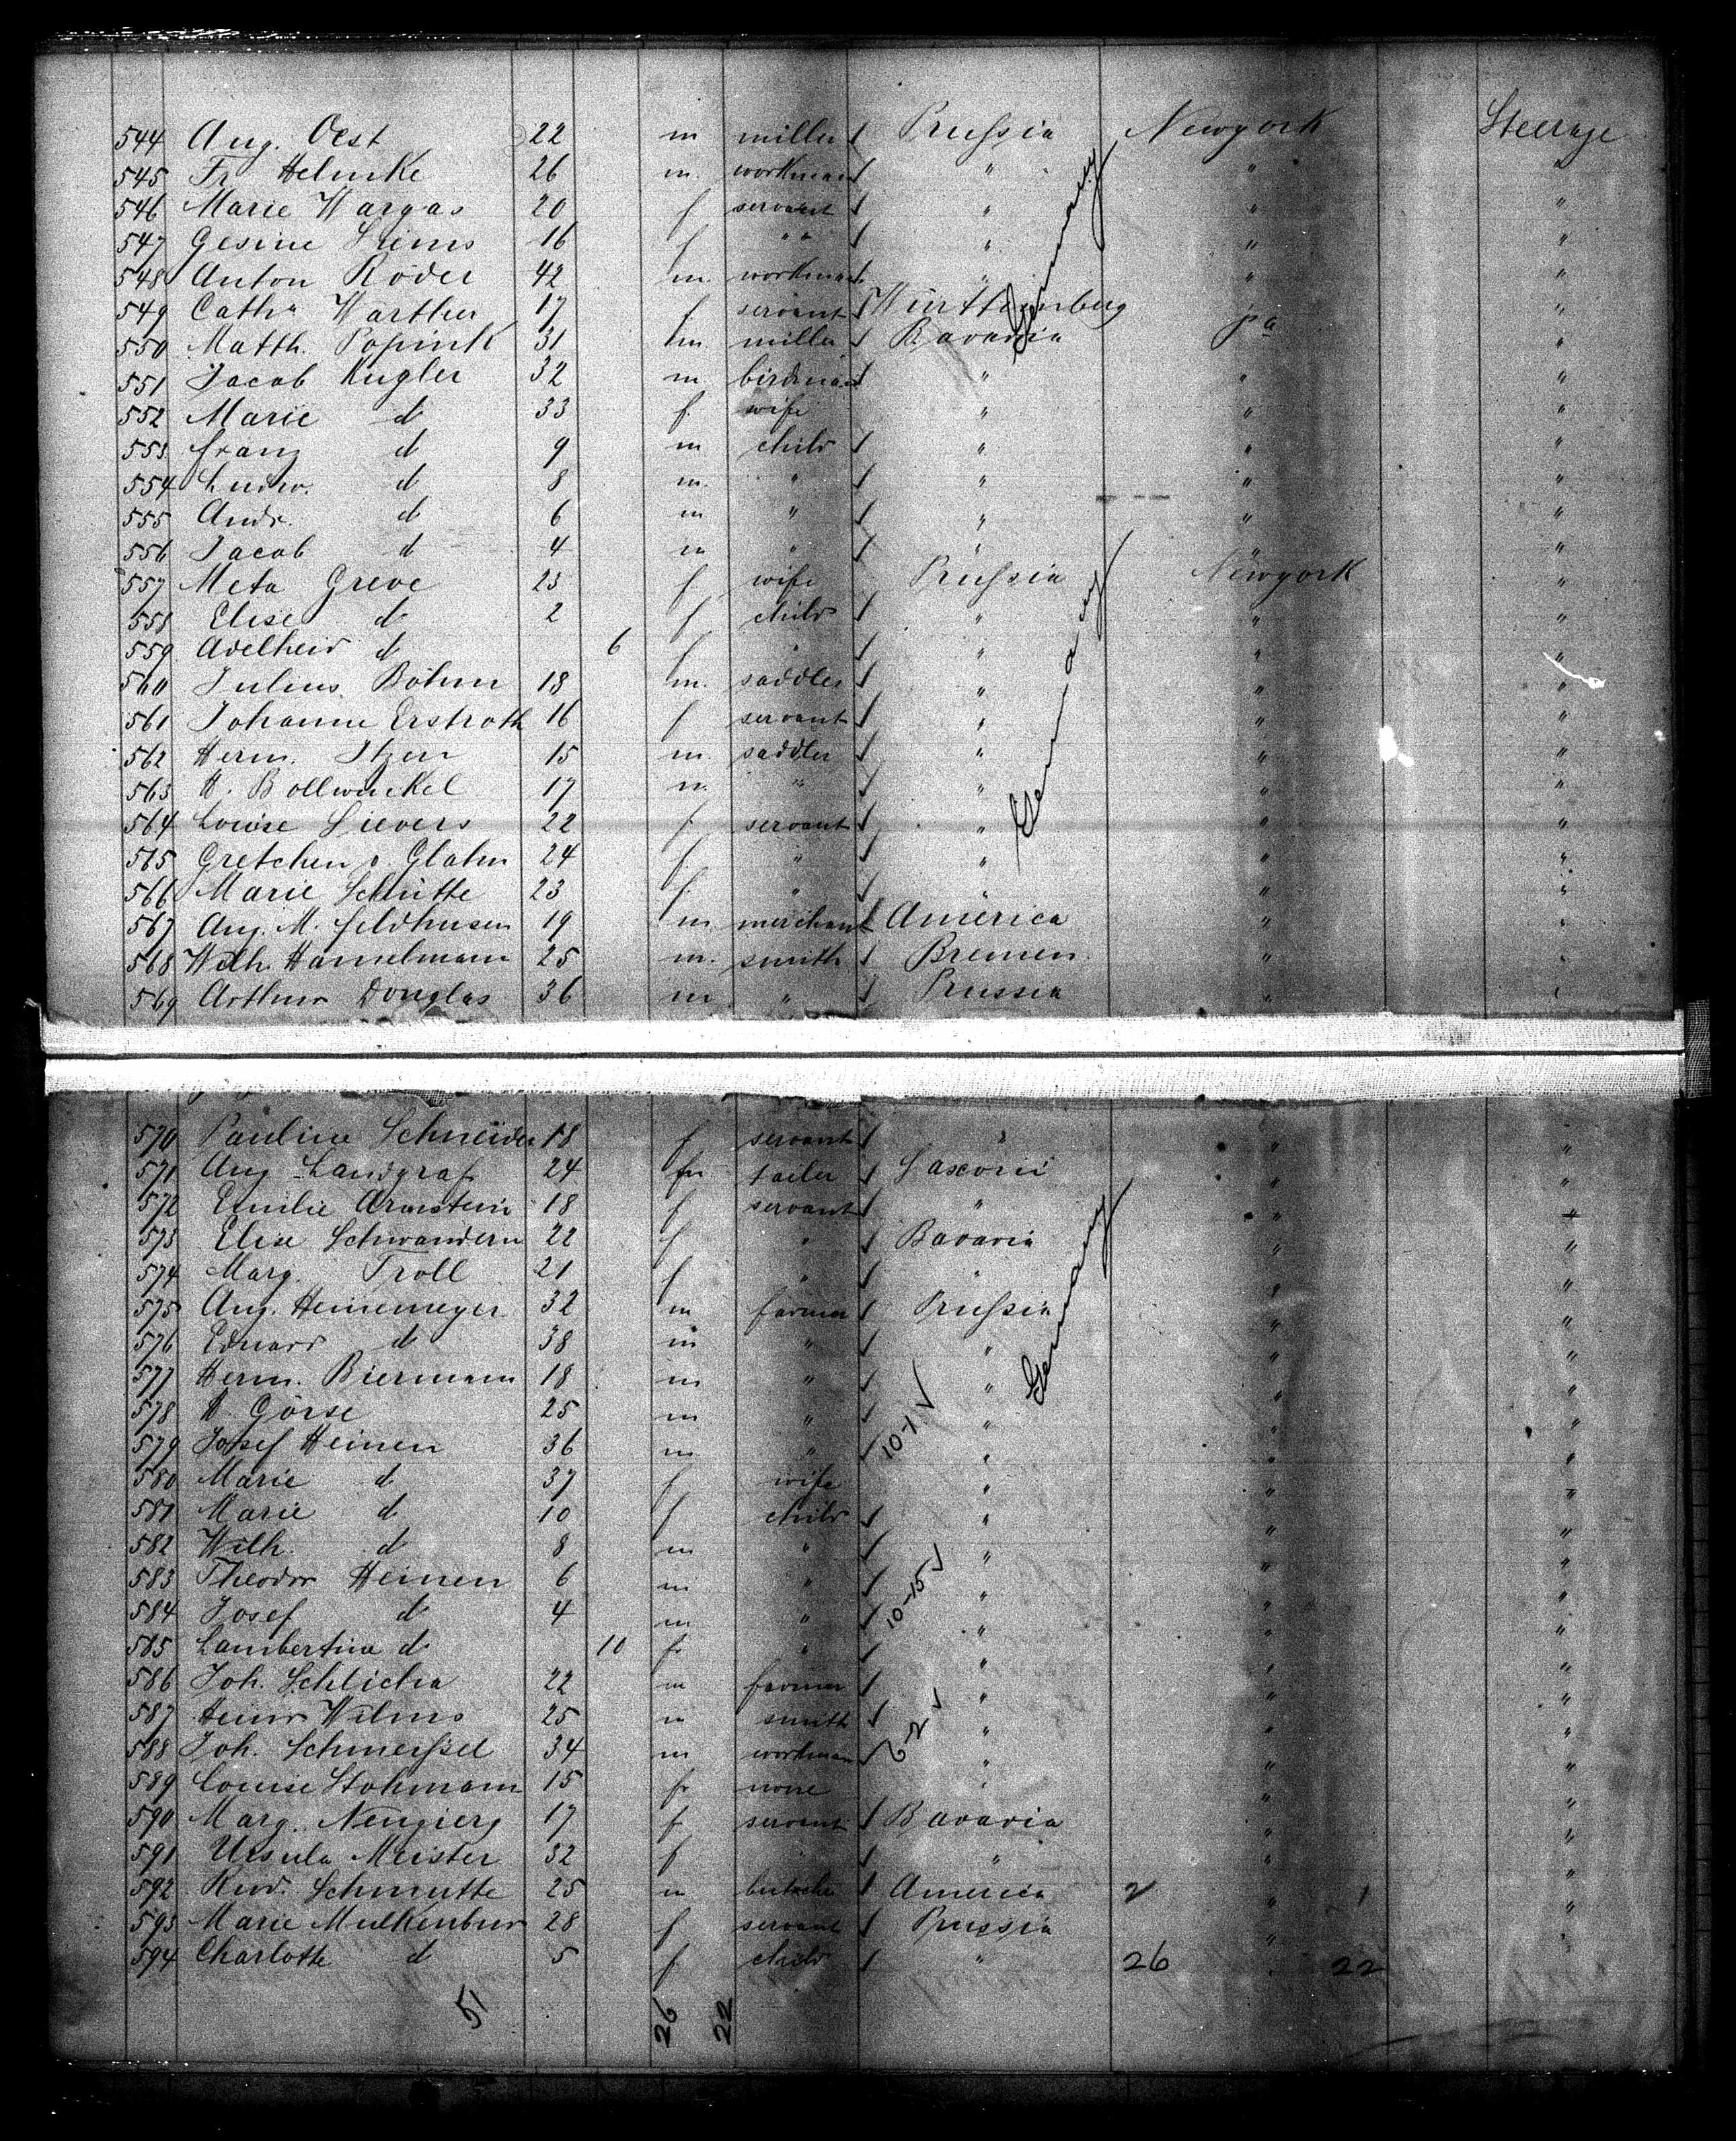 544 Aug. Oest 22 m miller Prussia Newyork Steerage
545 Fr Helmke 26 m. workman " " "
546 Marie Wargas 20 f servant " " "
547 Gesine Siems 16 f " " " " "
548 Anton Röder 42 m. workman " " "
549 Catha Warther 17 f servant Württemberg " "
550 Matth. Popink 31 m miller Bavaria pa "
551 Jacob Kugler 32 m birdman " " "
552 Marie d 33 f. wife " " "
553 franz d 9 m child " " "
554 Ludw. d 8 m. " " " "
555 Andr. d 6 m " " " "
556 Jacob d 4 m " " " "
557 Meta Greve 23 f wife Prussia Newyork "
558 Elise d 2 f child " " "
559 Adelheid d 6 f " " " "
560 Julius Böhm 18 m. saddler " " "
561 Johanne Erstroth 16 f servant " " "
562 Herm. Itzen 15 m. saddler " " "
563 H. Bollwinkel 17 m. " " " "
564 Louise Sievers 22 f servant " " "
565 Gretchen v. Glahn 24 f " " " "
566 Marie Schütte 23 f " " " "
567 Aug. M. feldhusen 19 m merchant America " "
568 Wilh. Hamelmann 25 m. smith Bremen. " "
569 Arthur Douglas 36 m " Prussia " "
Germany
Germany
570 Pauline Schneider 18 f servant " " "
571 Aug Landgraf 24 m tailer " "
572 Emilie Arnstein 18 f servant " " "
573 Elise Schwandern 22 f " Bavaria " "
574 Marg. Troll 21 f " " " "
575 Aug. Heinemeyer 32 m farmer Prussia " "
576 Eduard d 38 m " " " "
577 Herm. Biermann 18 m " " " "
578 H. Görse 25 m " " " "
579 Josef Heinen 36 m " " " "
580 Marie d 37 f wife " " "
581 Marie d 10 f child " " "
582 Wilh. d 8 m " " " "
583 Theodor Heinen 6 m " " " "
584 Josef d 4 m " " " "
585 Lambertine d 10 f " " " "
586 Joh. Schlicha 22 m farmer " " "
587 Heinr Wilms 25 m smith " " "
588 Joh. Schmerssel 34 m workman " " "
589 Louise Stohmann 15 f none " " "
590 Marg. Neugierg 17 f servant Bavaria " "
591 Ursula Meister 32 f " " " "
592 Rud. Schmutte 25 m America 2 " 1 "
593 Marie Mulkenbur 28 f servant Prussia " "
594 Charlotte d 5 f child " 26 " 22
Germany
10-1 V
10-15 V
51 26 22